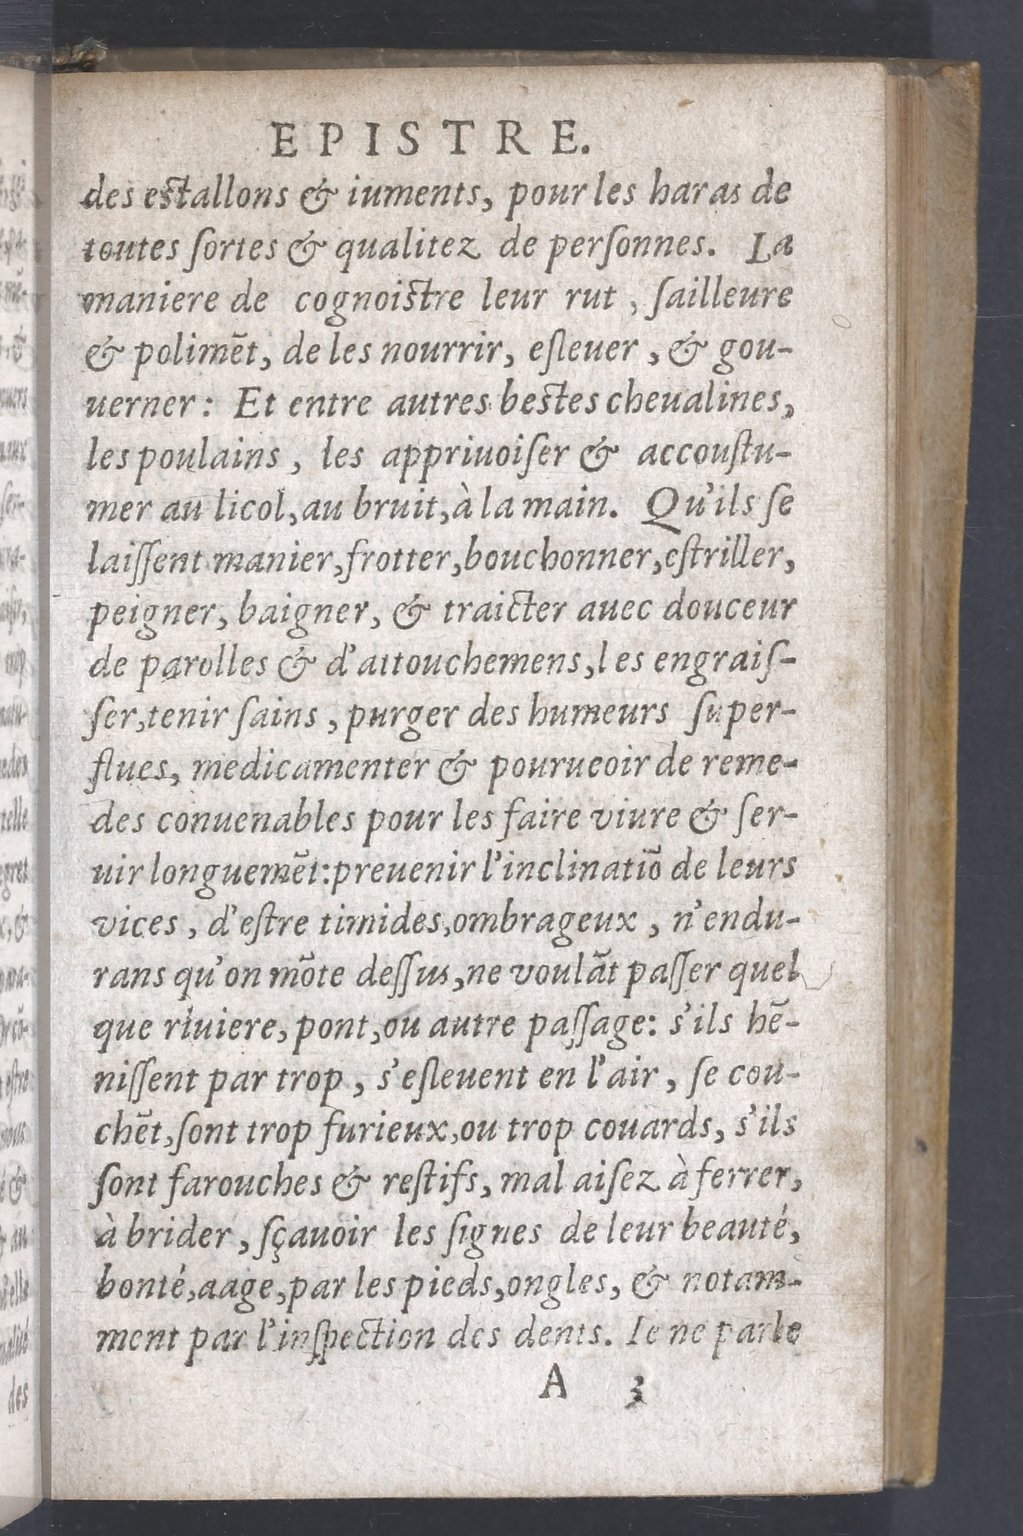 EPISTRE.
des estallons & iuments, pour les haras de
toutes ſortes & qualitez de perſonnes. La
maniere de cognoistre leur rut, ſailleure
& polimēt, de les nourrir, eſleuer, & gou-
uerner: Et entre autres bestes cheualines,
les poulains, les appriuoiſer & accouſtu-
mer au licol, au bruit, à la main. Qu'ils ſe
laiſſent manier, frotter, bouchonner, eſtriller,
peigner, baigner, & traicter auec douceur
de parolles & d'attouchemens, les engraiſ-
ſer, tenir ſains, purger des humeurs ſuper-
flues, medicamenter & pourueoir de reme-
des conuenables pour les faire viure & ſer-
uir longuemēt: preuenir l'inclinatiō de leurs
vices, d'eſtre timides, ombrageux, n'endu-
rans qu'on mōte deſſus, ne voulāt paſſer quel
que riuiere, pont, ou autre paſſage: s'ils hē-
niſſent par trop, s'eſleuent en l'air, ſe cou-
chēt, ſont trop furieux, ou trop couards, s'ils
ſont farouches & reſtifs, mal aiſez à ferrer,
à brider, ſçauoir les ſignes de leur beauté,
bonté, aage, par les pieds, ongles, & notam-
ment par l'inſpection des dents. Ie ne parle
A 3